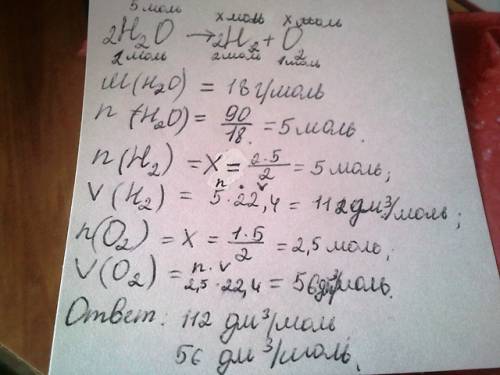 5 моль x моль x моль
2H₂O → 2H₂ + O₂
2 моль 2 моль 1 моль
M(H₂O) = 18 г/моль
n (H₂O) = 90/18 = 5 моль.
n(H₂) = X = 2·5/2 = 5 моль;
n v
V(H₂) = 5·22,4 = 112 дм³/моль;
n(O₂) = X = 1·5/2 = 2,5 моль;
V(O₂) = n·v
2,5·22,4 = 56 дм³/моль.
Ответ: 112 дм³/моль
56 дм³/моль.